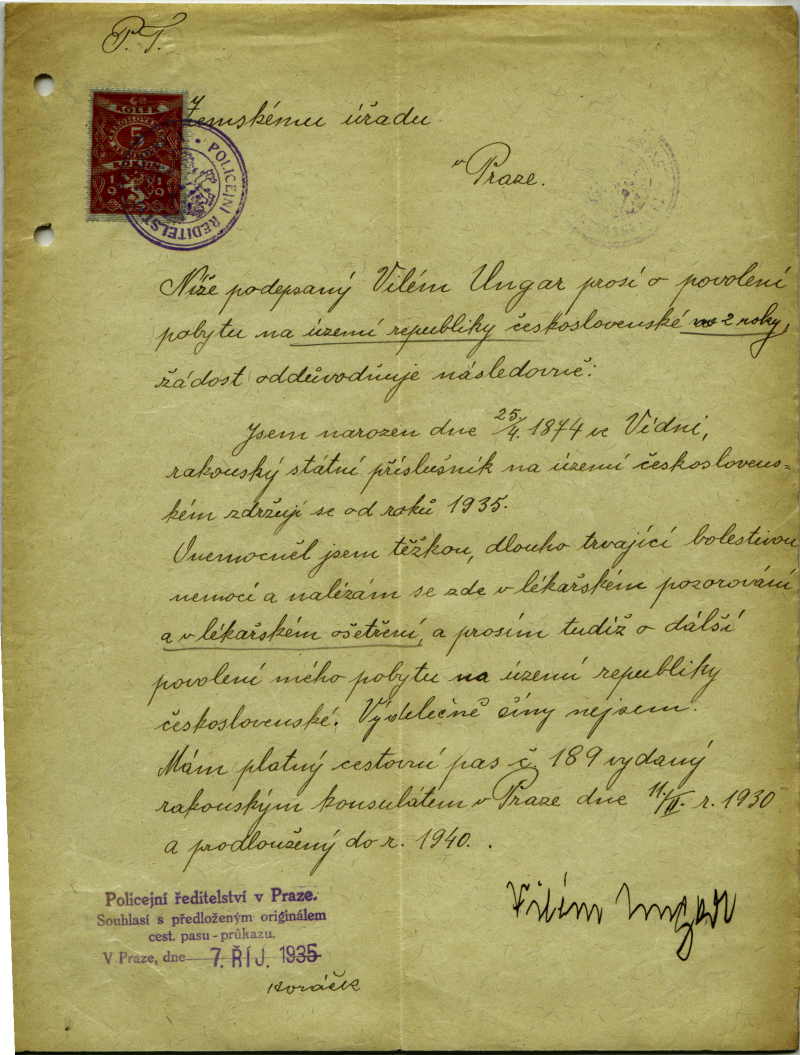 P. T.
Zemskému úřadu
v Praze.
KOLEK
5
KORUN
1919
POLICEJNÍ ŘEDITELST
Níže podepsaný Vilém Ungar prosí o povolení
pobytu na území republiky československé 2 roky,
žádost oddůvodňuje následovně:
Jsem narozen dne 25/4. 1874 ve Vídni,
rakouský státní příslušník na území českosloven=
ském zdržuji se od roků 1935.
Onemocněl jsem těžkou, dlouho trvající bolestivou
nemocí a nalézám se zde v lékařském pozorování
a v lékařském ošetření, a prosím tudíž o dálší
povolení mého pobytu na území republiky
československé. Výdělečně činy nejsem.
Mám platný cestovní pas č. 189 vydaný
rakouským konsulátem v Praze dne 11./II. r. 1930
a prodloužený do r. 1940.
Vilém Ungar
Policejní ředitelství v Praze.
Souhlasí s předloženým originálem
cest. pasu-průkazu.
V Praze, dne 7. ŘÍJ. 1935
Horáček